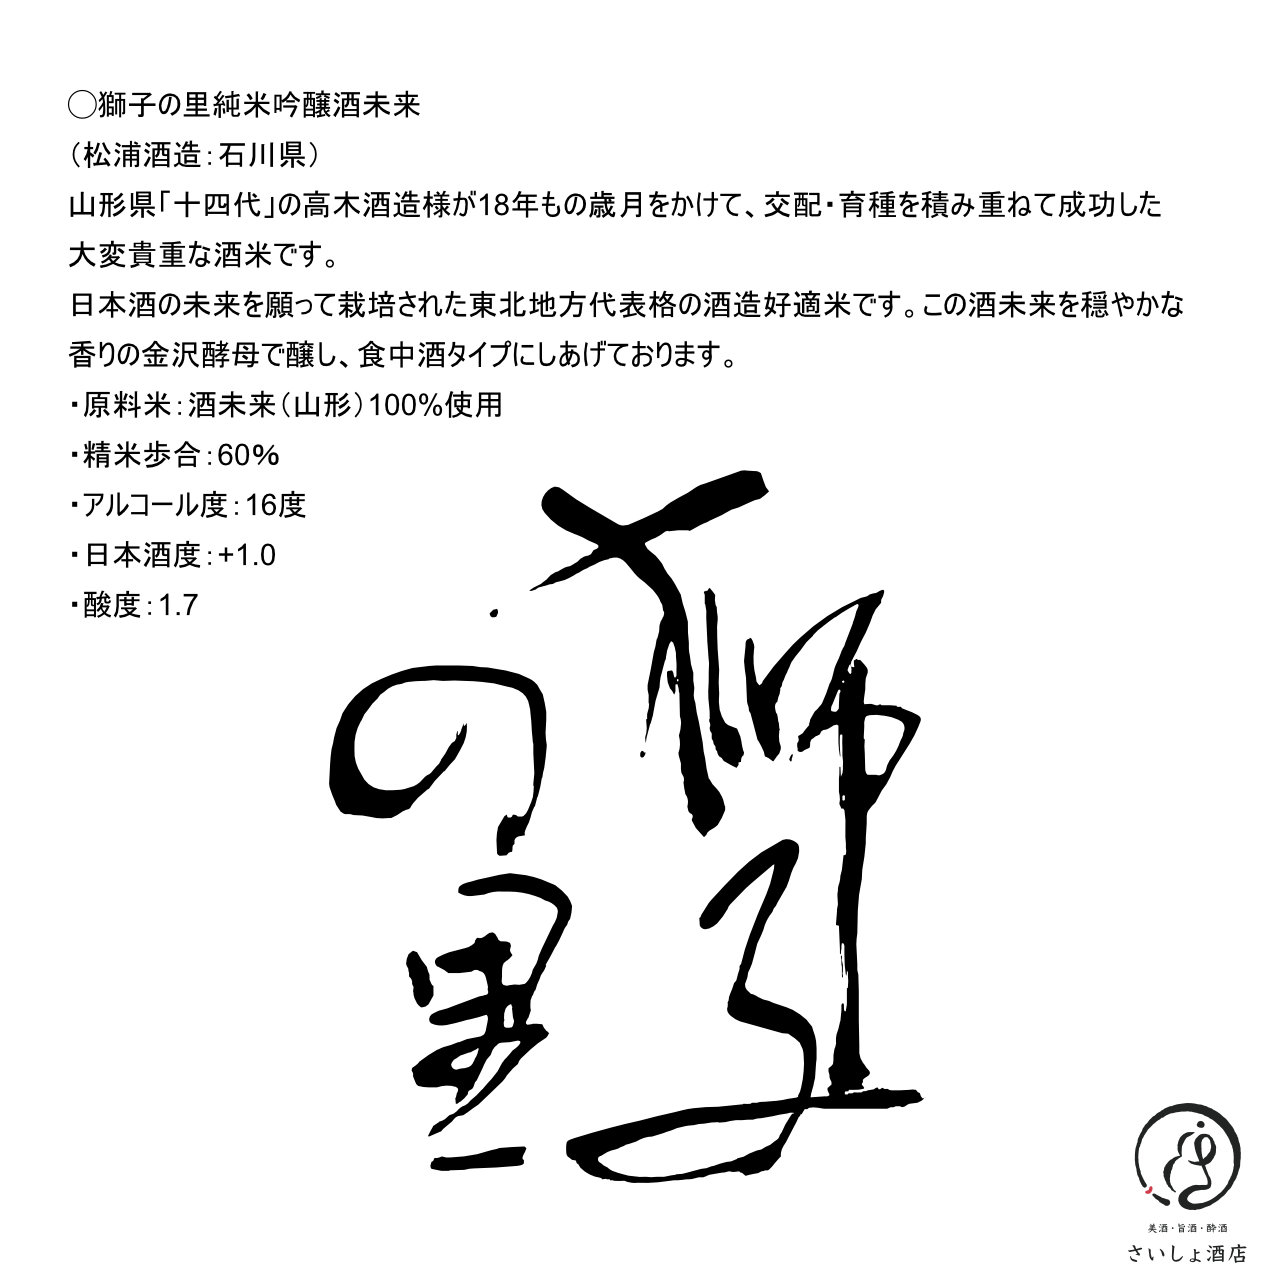 ◯獅子の里純米吟醸酒未来
（松浦酒造：石川県）
山形県「十四代」の高木酒造様が18年もの歳月をかけて、交配・育種を積み重ねて成功した
大変貴重な酒米です。
日本酒の未来を願って栽培された東北地方代表格の酒造好適米です。この酒未来を穏やかな
香りの金沢酵母で醸し、食中酒タイプにしあげております。
・原料米：酒未来（山形）100%使用
・精米歩合：60%
・アルコール度：16度
・日本酒度：+1.0
・酸度：1.7
獅子
の里
美酒・旨酒・酔酒
さいしょ酒店